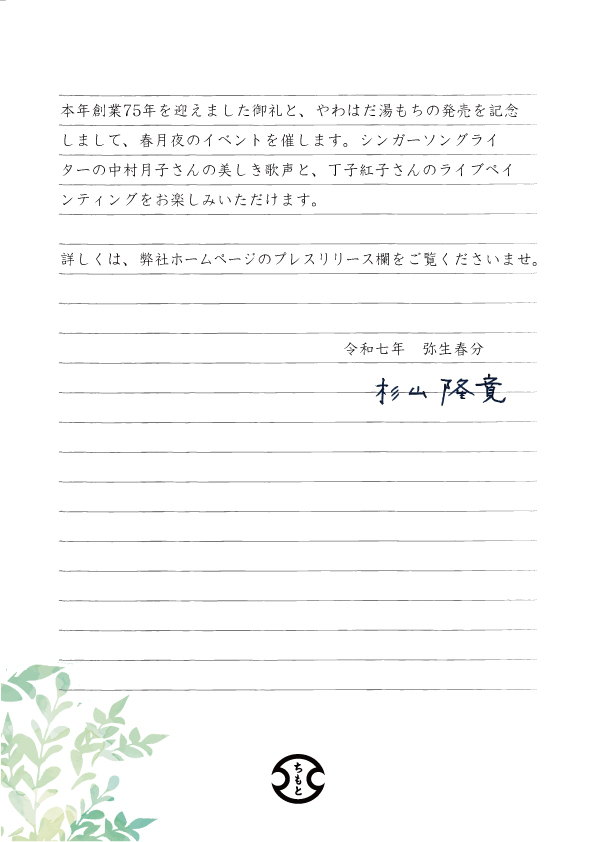 本年創業75年を迎えました御礼と、やわはだ湯もちの発売を記念
しまして、春月夜のイベントを催します。シンガーソングライ
ターの中村月子さんの美しき歌声と、丁子紅子さんのライブペイ
ンティングをお楽しみいただけます。
詳しくは、弊社ホームページのプレスリリース欄をご覧くださいませ。
令和七年　弥生春分
杉山 隆寛
ちもと